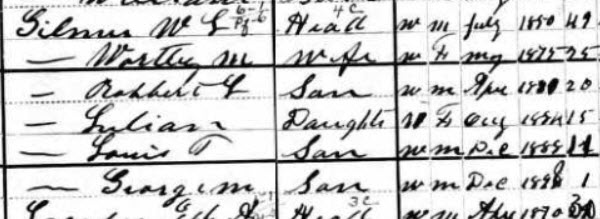 Gilmer W G Head W M July 1850 49
— Worthy M Wife W F May 1875 25
— Robbert L Son W M Apr 1880 20
— Lulian Daughter W F Aug 1884 15
— Louis T Son W M Dec 1888 11
— George M Son W M Dec 1898 1
Head W M Apr 1870